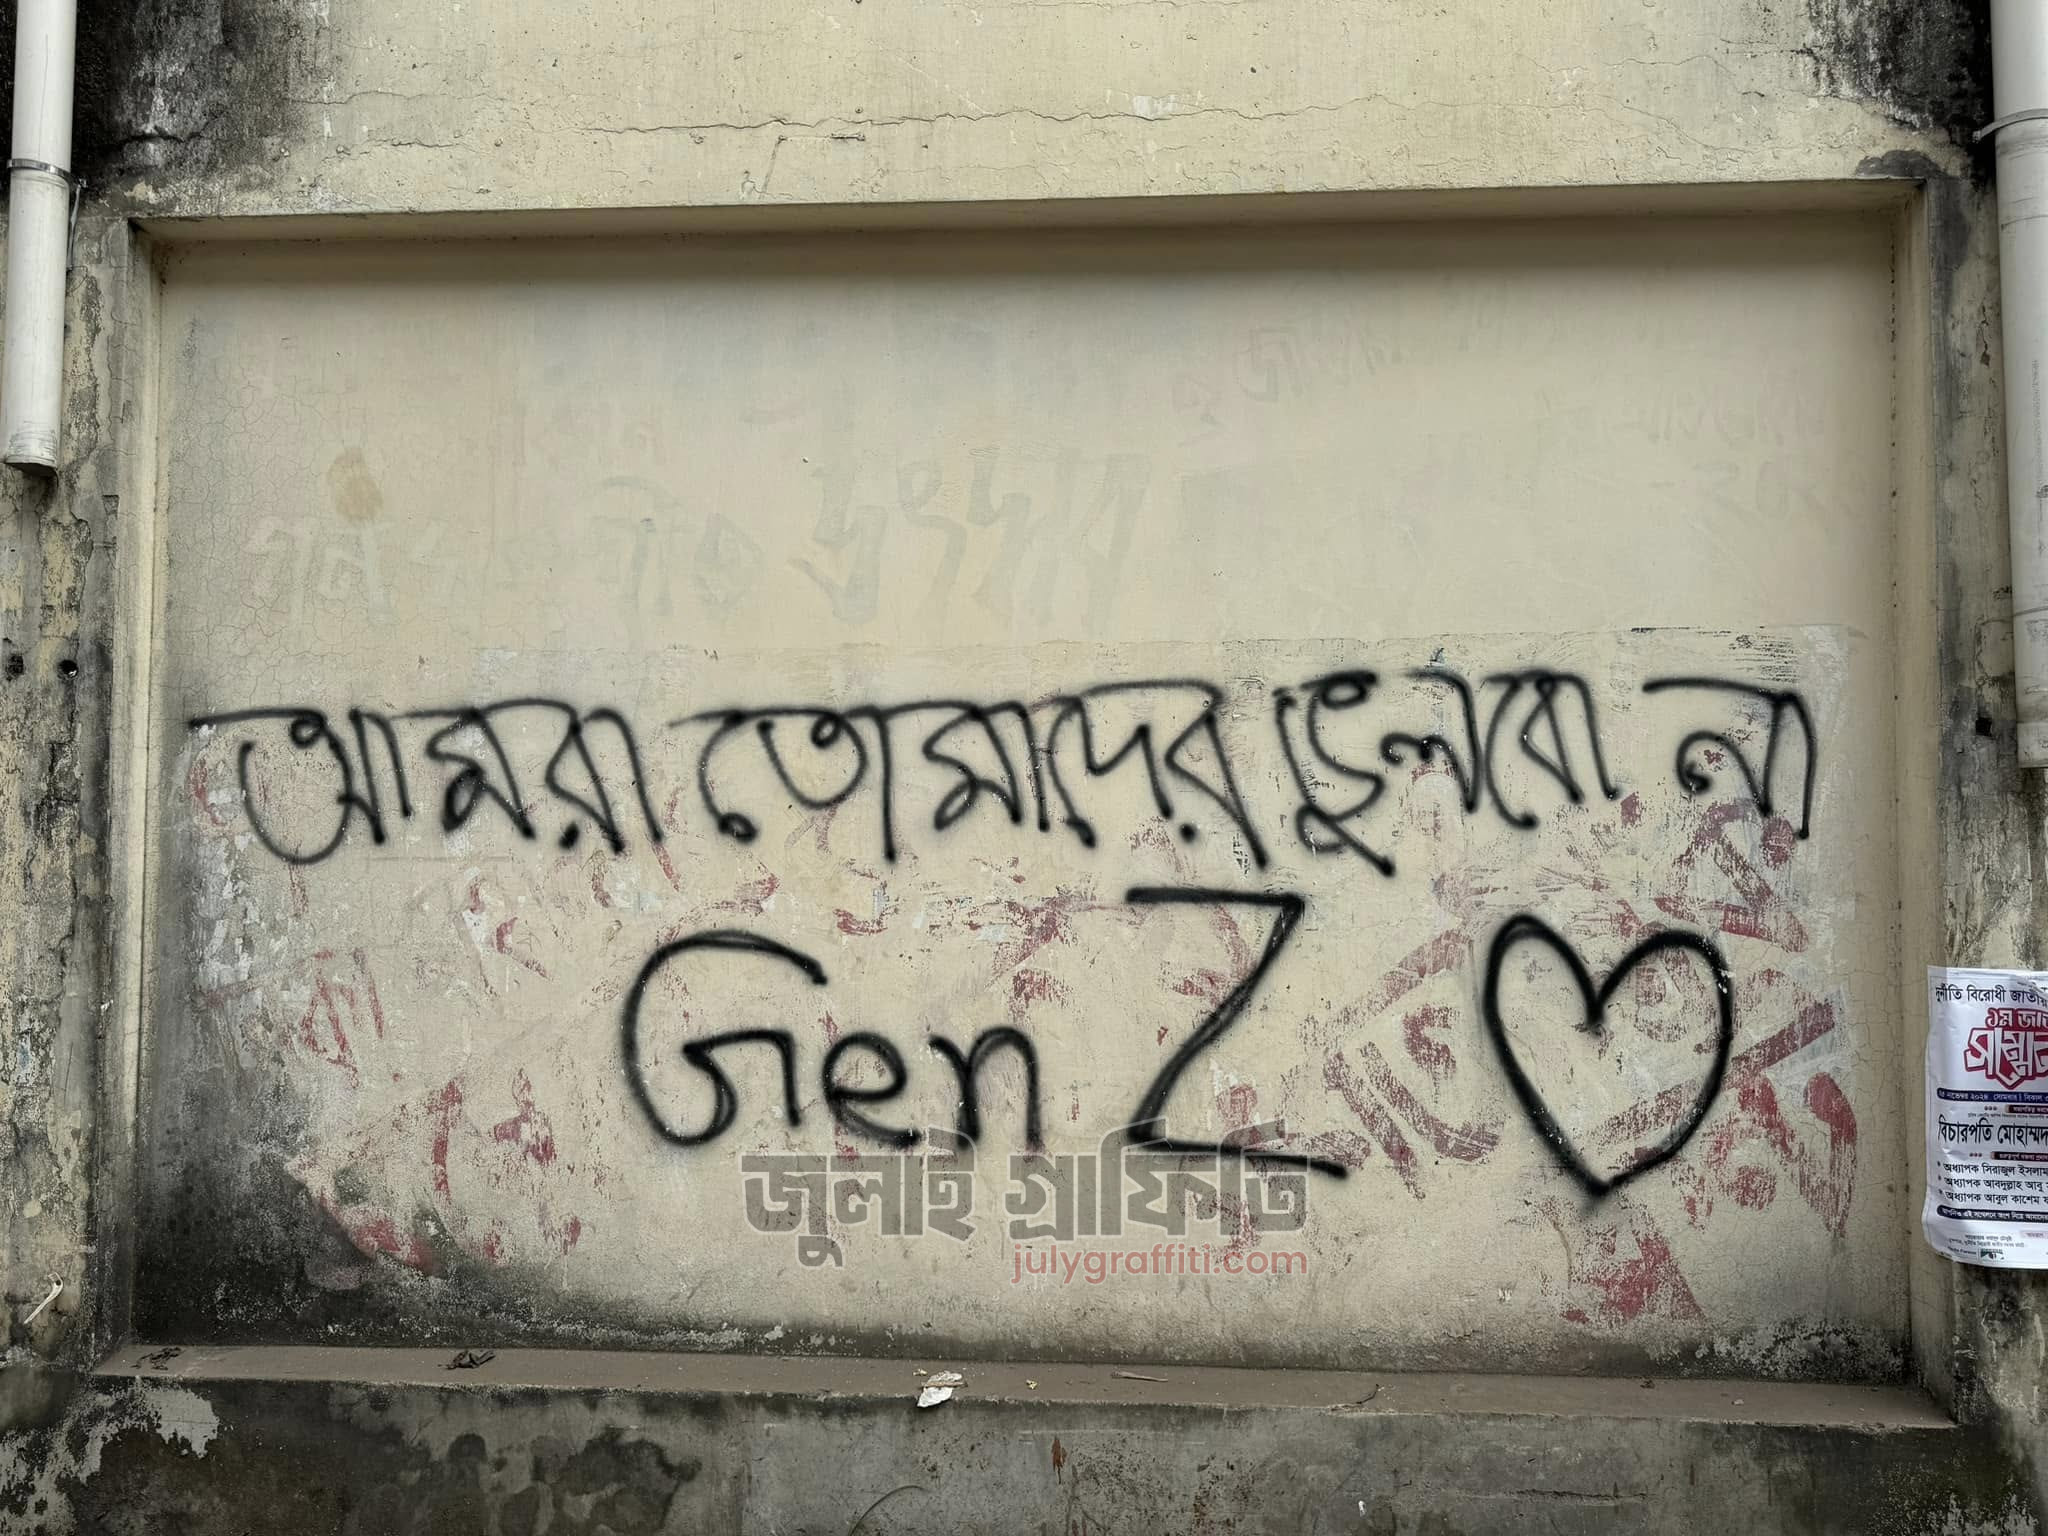 আমরা তোমাদের ভুলবো না
Gen Z
জুলাই গ্রাফিতি
julygraffiti.com
দুর্নীতি বিরোধী জাতীয়
১ম
নভেম্বর ২০২৪ সোমবার | বিকাল
বিচারপতি মোহাম্মদ
অধ্যাপক সিরাজুল ইসলাম
অধ্যাপক আবদুল্লাহ আবু
অধ্যাপক আবুল কাশেম